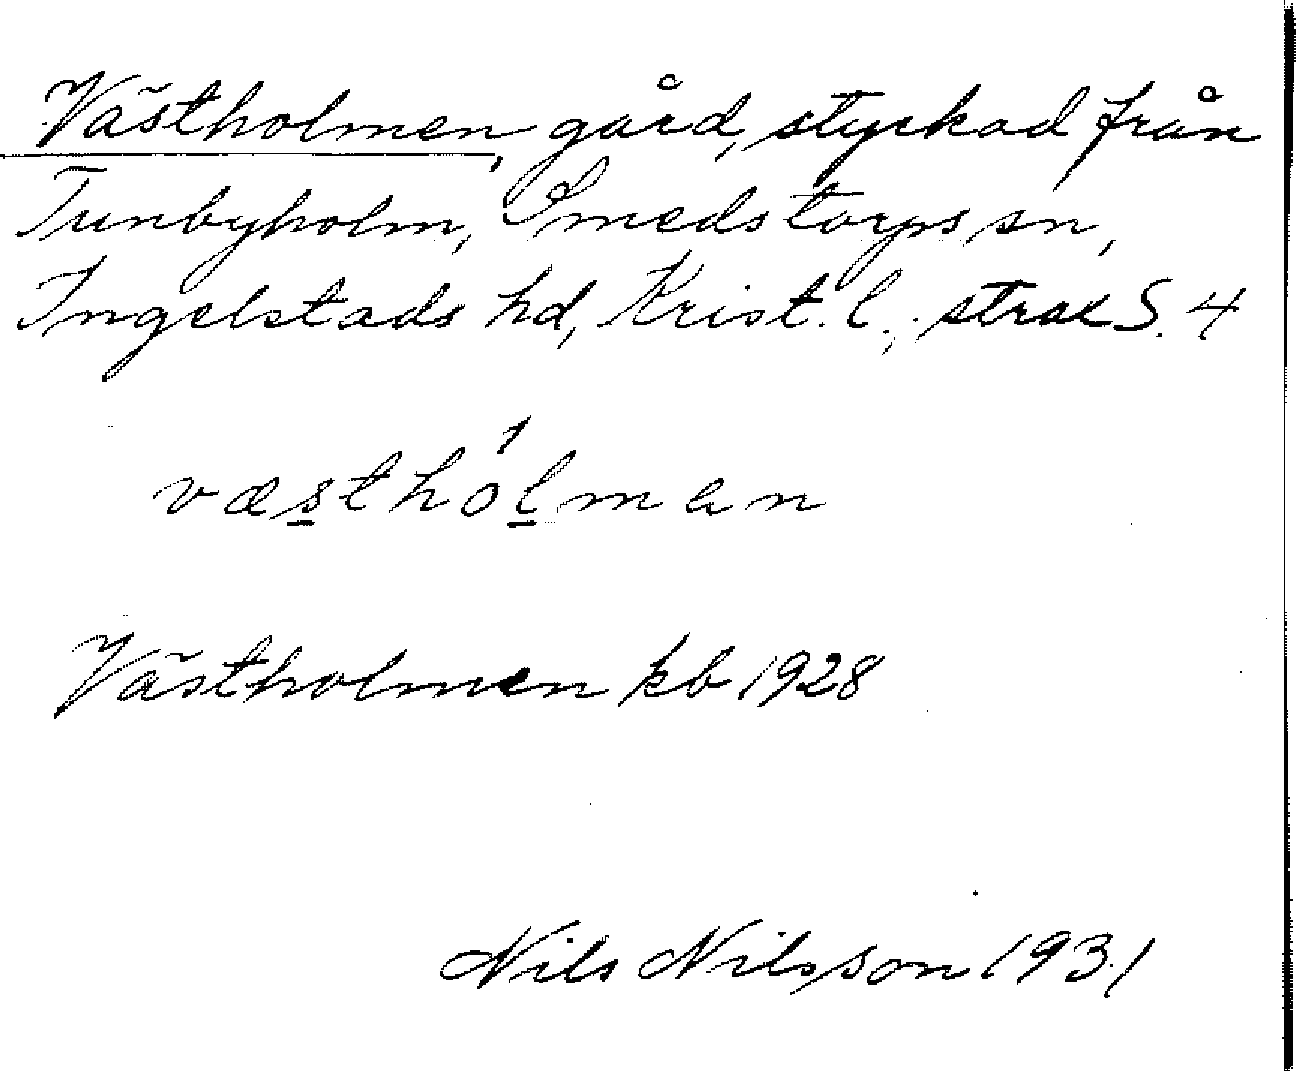 Västholmen, gård, styckad från
Tunbyholm, Smedstorps sn,
Ingelstads hd, Krist. l.; strax S. 4
væsthólman
Västholmen kb 1928
Nils Nilsson 1931